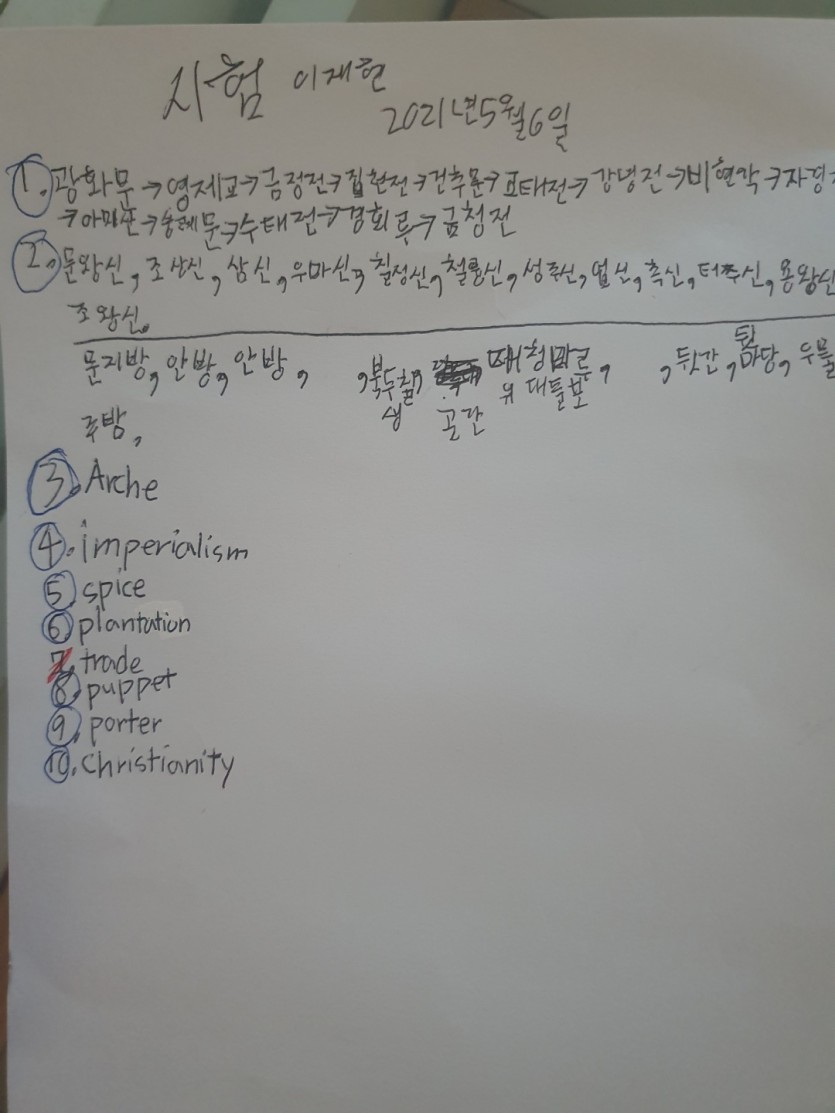 시험 이재현
2021년5월6일
1. 광화문→영제교→금정전→집현전→건추문→교태전→강녕전→비현각→자경
→아미산→숭례문→수태전→경회루→금청전
2. 문왕신, 조상신, 삼신, 우마신, 칠정신, 철륭신, 성주신, 업신, 측신, 터주신, 용왕신
조왕신.
문지방, 안방, 안방, , 북두칠, 대청마루, , 뒷간, 뒷마당, 우물
생 공간 위 대들보
주방,
3. Arche
4. imperialism
5. spice
6. plantation
7. trade
8. puppet
9. porter
10. Christianity